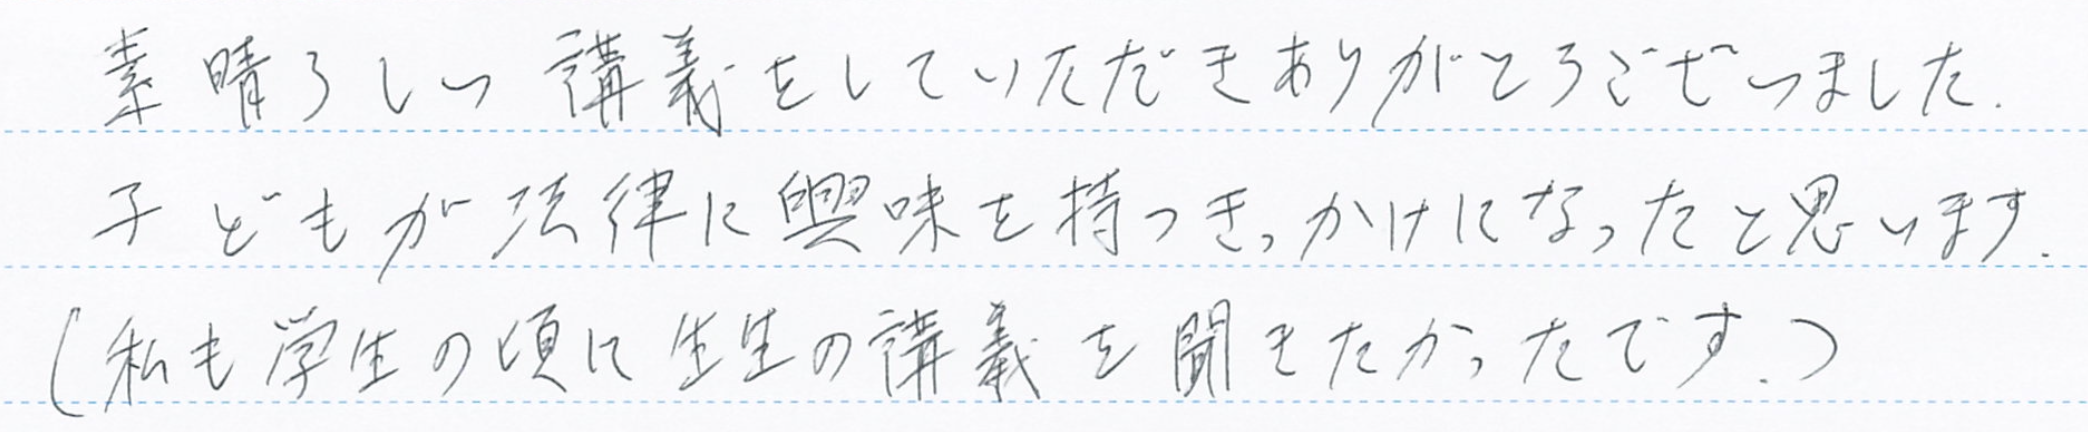 素晴らしい講義をしていただきありがとうございました.
子どもが法律に興味を持つきっかけになったと思います.
(私も学生の頃に先生の講義を聞きたかったです.)